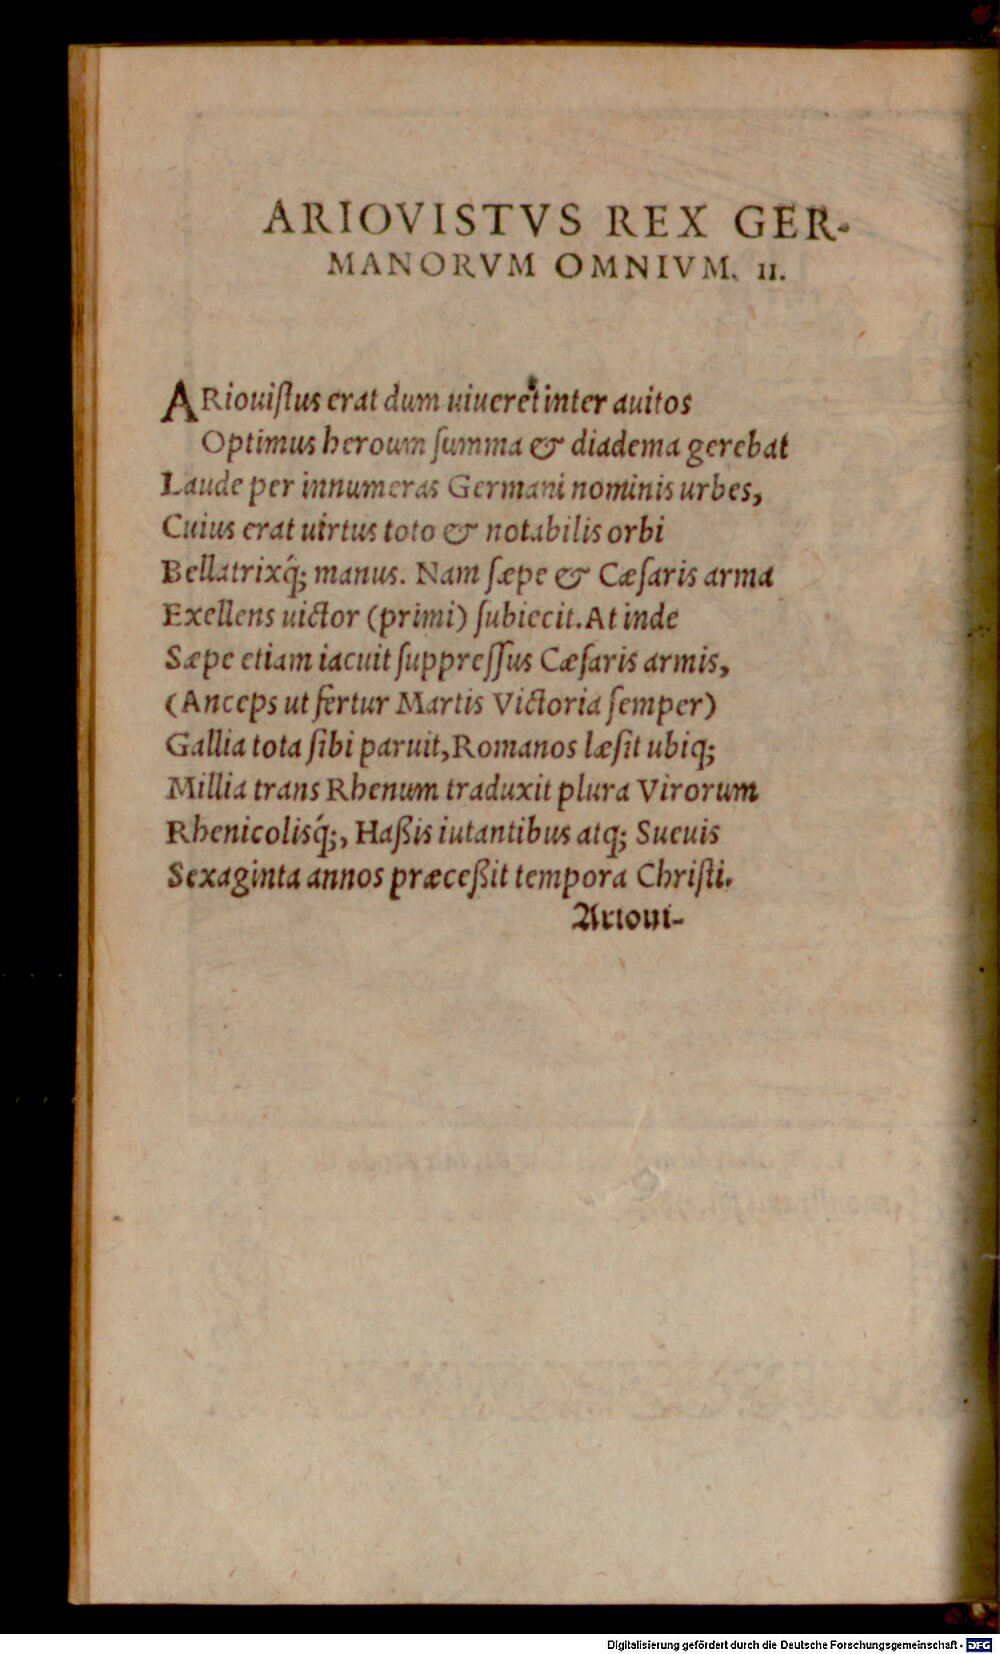 ARIOVISTVS REX GER-
MANORVM OMNIVM. II.
ARiouiſtus erat dum uiueret inter auitos
Optimus heroum ſumma & diadema gerebat
Laude per innumeras Germani nominis urbes,
Cuius erat uirtus toto & notabilis orbi
Bellatrixq́; manus. Nam ſæpe & Cæſaris arma
Exellens uictor (primi) ſubiecit. At inde
Sæpe etiam iacuit ſuppreſſus Cæſaris armis,
(Anceps ut fertur Martis Victoria ſemper)
Gallia tota ſibi paruit, Romanos læſit ubiq;
Millia trans Rhenum traduxit plura Virorum
Rhenicolisq́;, Haßis iutantibus atq; Sueuis
Sexaginta annos præceßit tempora Chriſti.
Arioui-
Digitalisierung gefördert durch die Deutsche Forschungsgemeinschaft - DFG